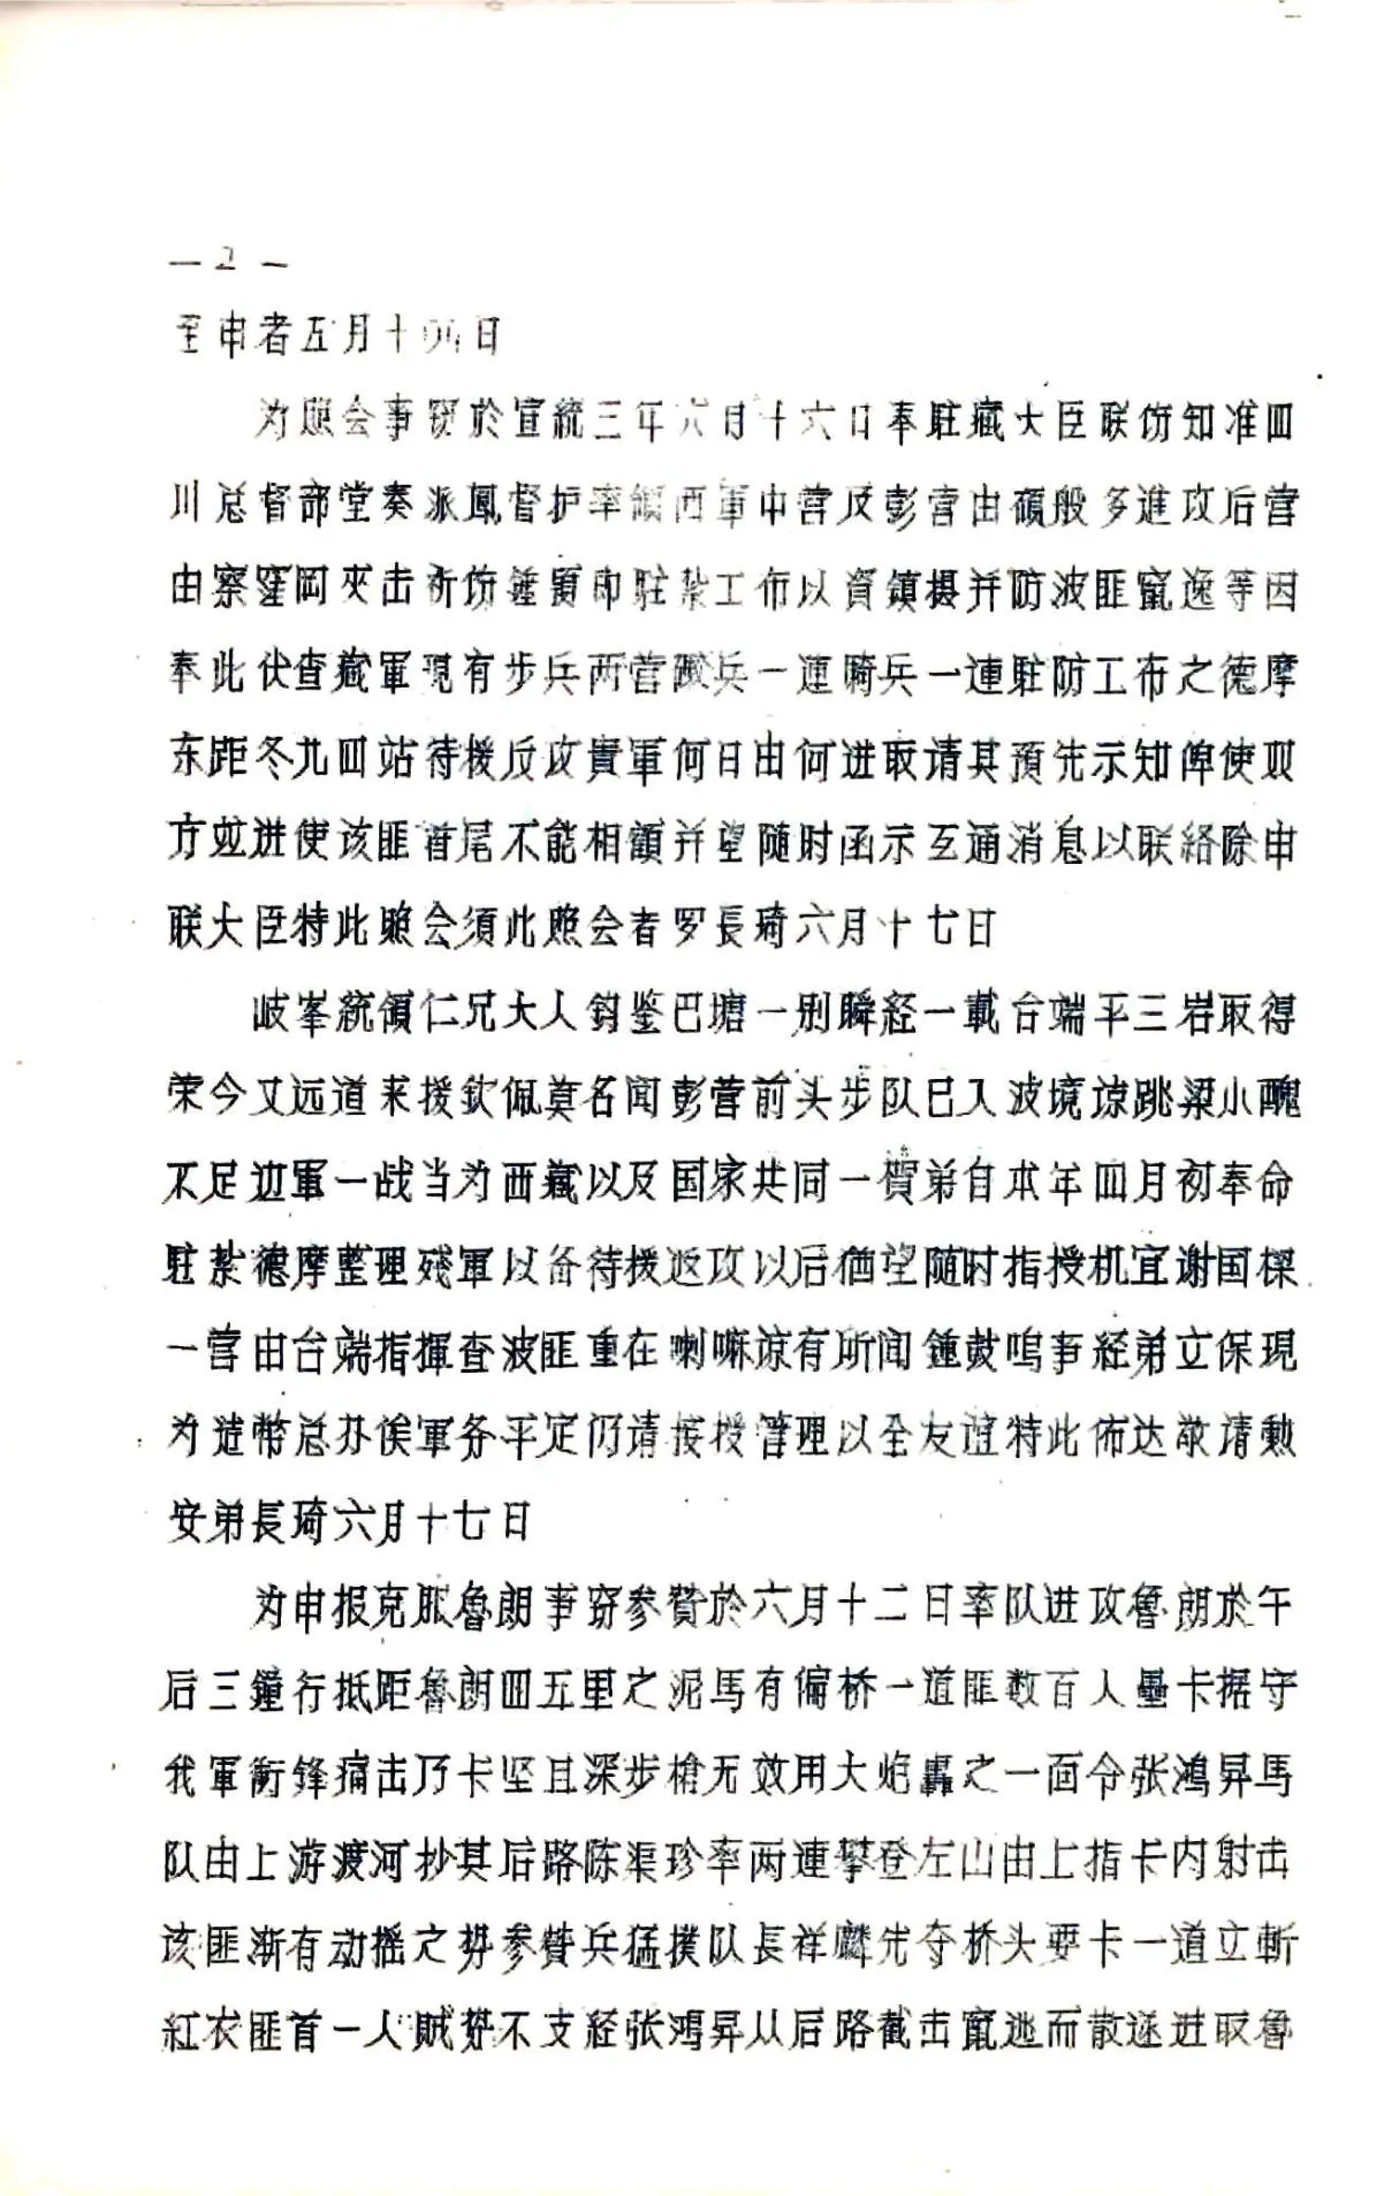 — 2 —
至申者五月十四日
为照会事窃於宣統三年六月十六日奉駐藏大臣联饬知准四
川总督部堂奏派鳳督护率領西軍中营及彭营由碩般多進攻后营
由察窪岡夾击祈饬鍾頴即駐紮工布以資鎮摄并防波匪竄逸等因
奉此伏查藏軍現有步兵两营礟兵一連騎兵一連駐防工布之德摩
东距冬九四站待援反攻貴軍何日由何进取请其預先示知俾使双
方並进使该匪首尾不能相顧并望随时函示互通消息以联絡除申
联大臣特此照会須此照会者罗長琦六月十七日
岐峯統領仁兄大人鈞鉴巴塘一别瞬経一載台端平三岩取得
荣今又远道来援欽佩莫名闻彭营前头步队已入波境谅跳梁小醜
不足边軍一战当为西藏以及国家共同一賀弟自本年四月初奉命
駐紮德摩整理殘軍以备待援返攻以后循望随时指授机宜谢国樑
一营由台端指揮查波匪重在喇嘛谅有所闻鍾鼓鸣事経弟立保現
为造幣总办俟軍务平定仍请接授管理以全友谊特此佈达敬请勲
安弟長琦六月十七日
为申报克服魯朗事窃参贊於六月十二日率队进攻魯朗於午
后三鐘行抵距魯朗四五里之泥馬有偏桥一道匪数百人壘卡据守
我軍衝锋痛击乃卡坚且深步槍无效用大炮轟之一面令张鴻昇馬
队由上游渡河抄其后路陈渠珍率两連攀登左山由上指卡内射击
该匪渐有动摇之势参贊兵猛撲队長祥麟先夺桥头要卡一道立斬
紅衣匪首一人贼势不支経张鴻昇从后路截击竄逃而散遂进取魯